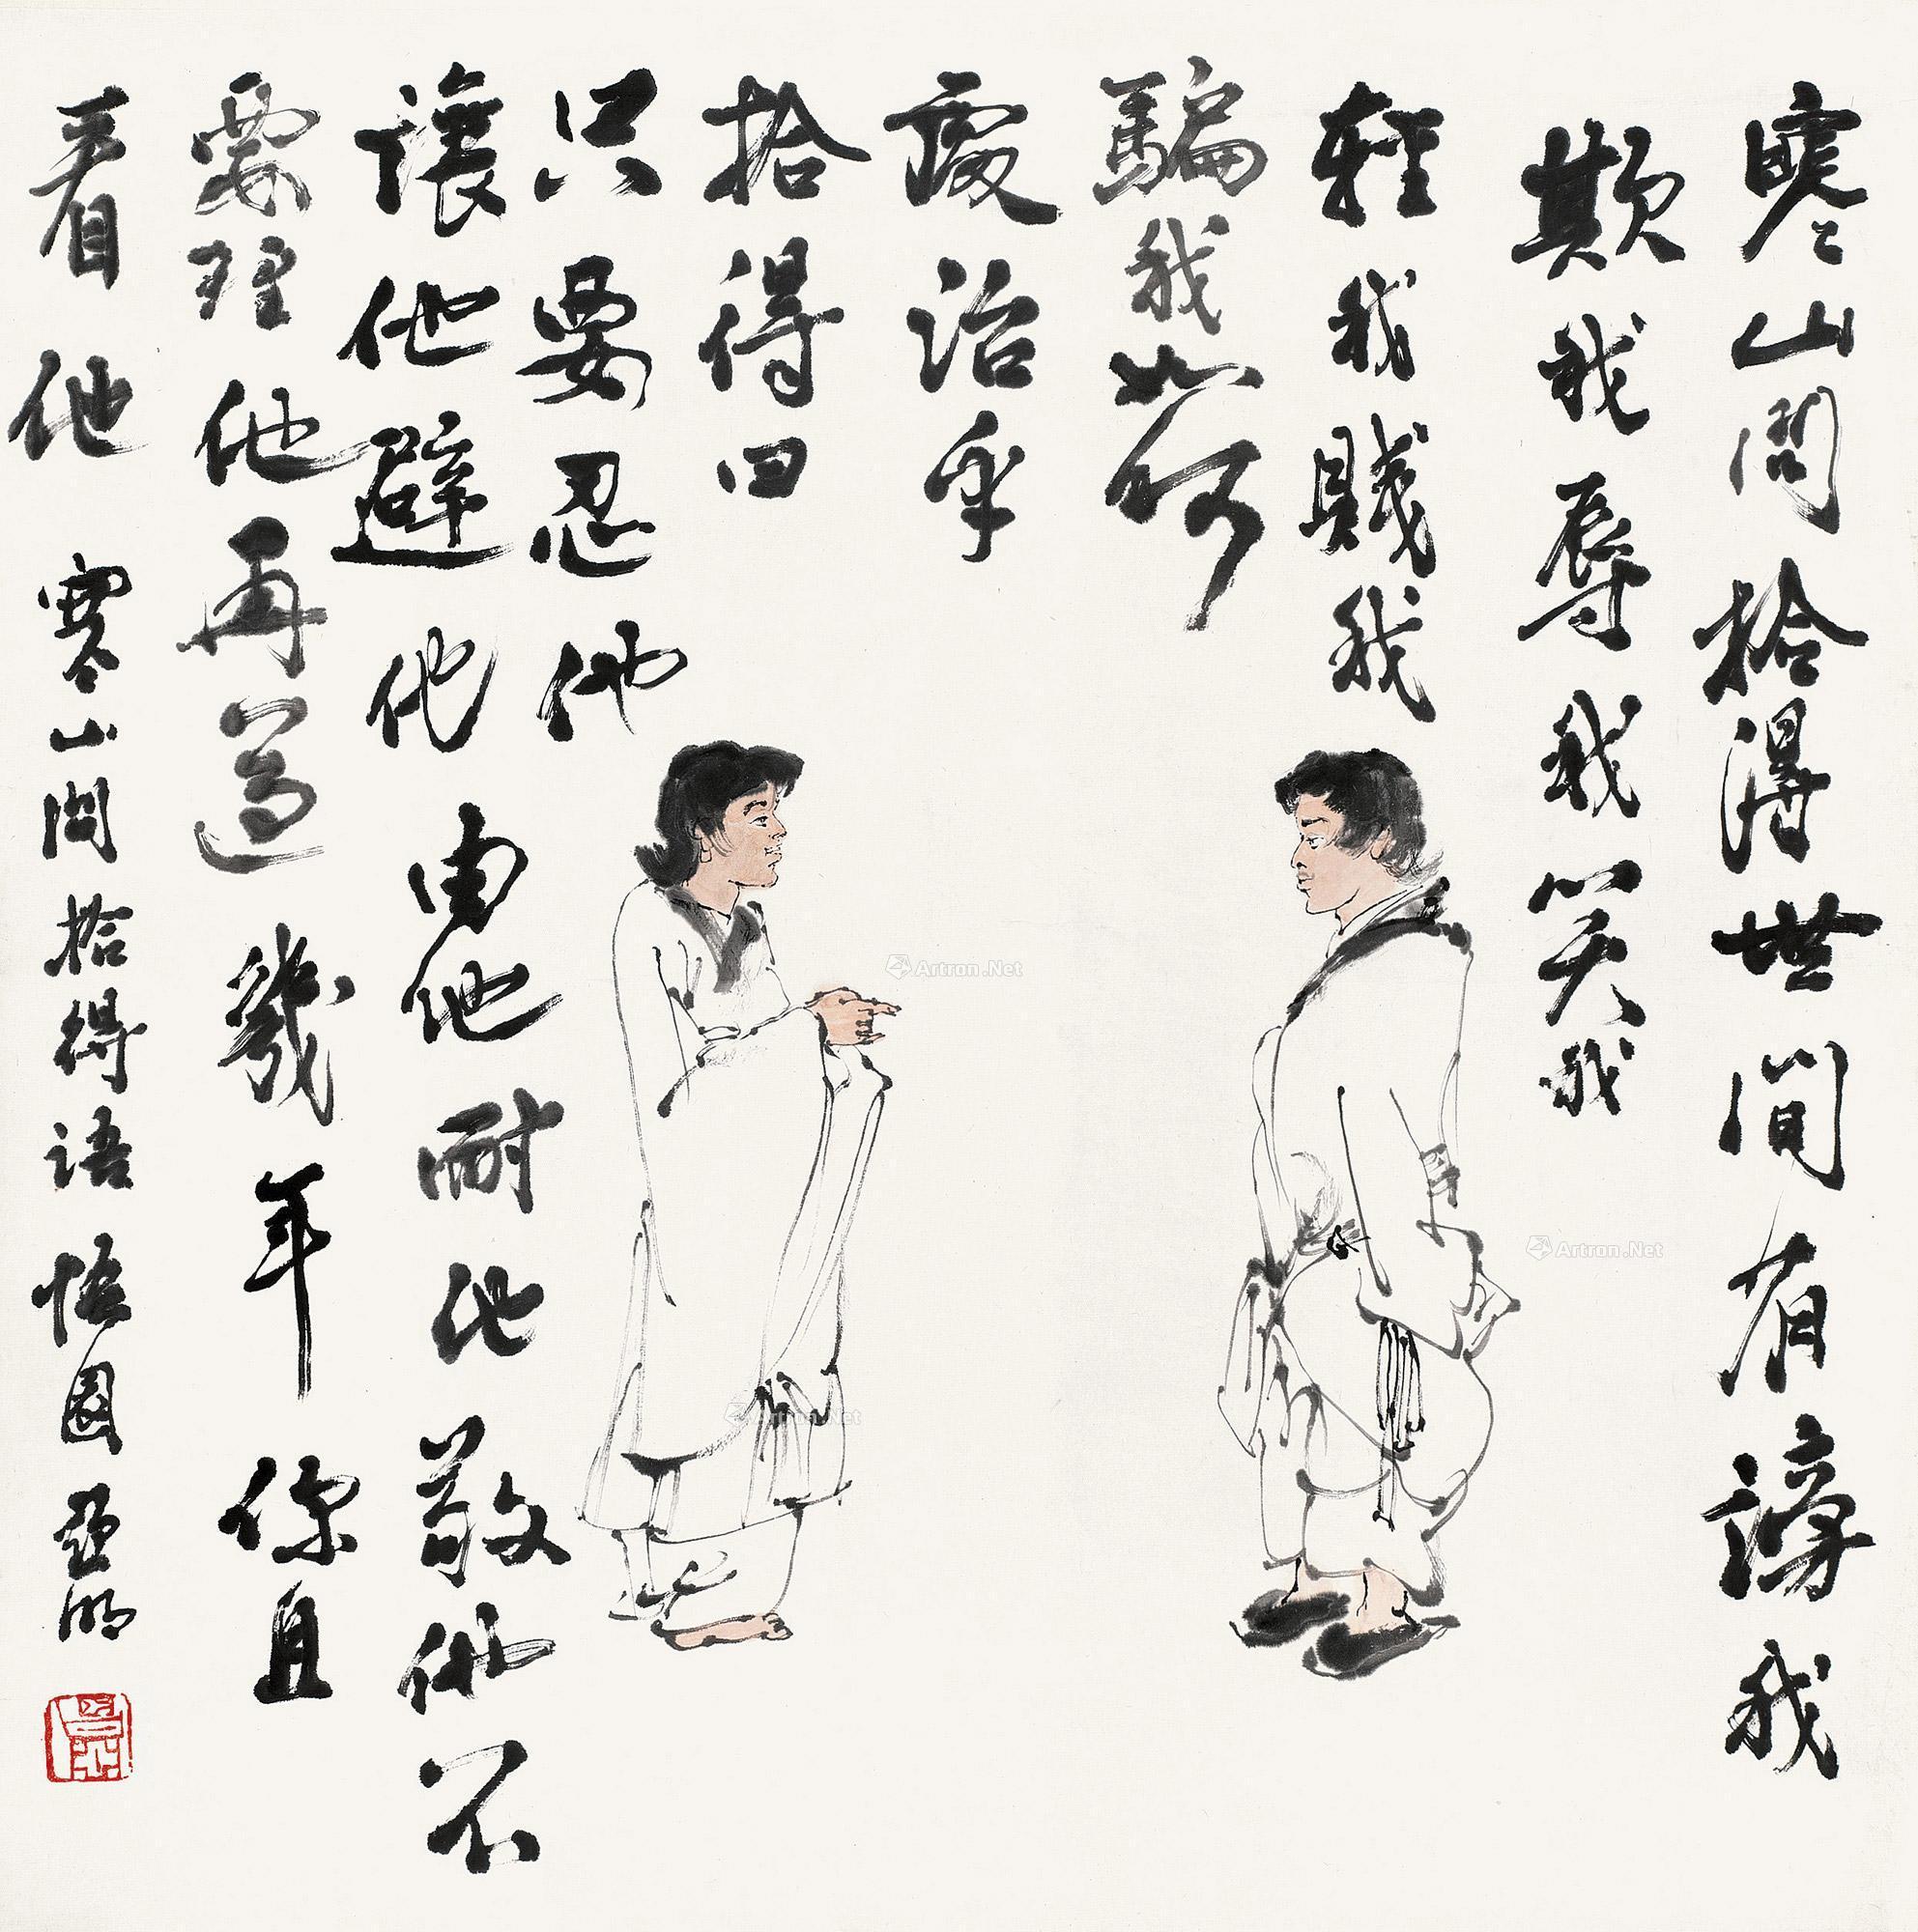 寒山問拾得世間有謗我
欺我辱我笑我
輕我賤我
騙我如何
處治乎
拾得曰
只要忍他
讓他避他由他耐他敬他不
要理他再過幾年你且
看他
寒山問拾得語 悟園亞明
Artron.Net
Artron.Net
Artron.Net